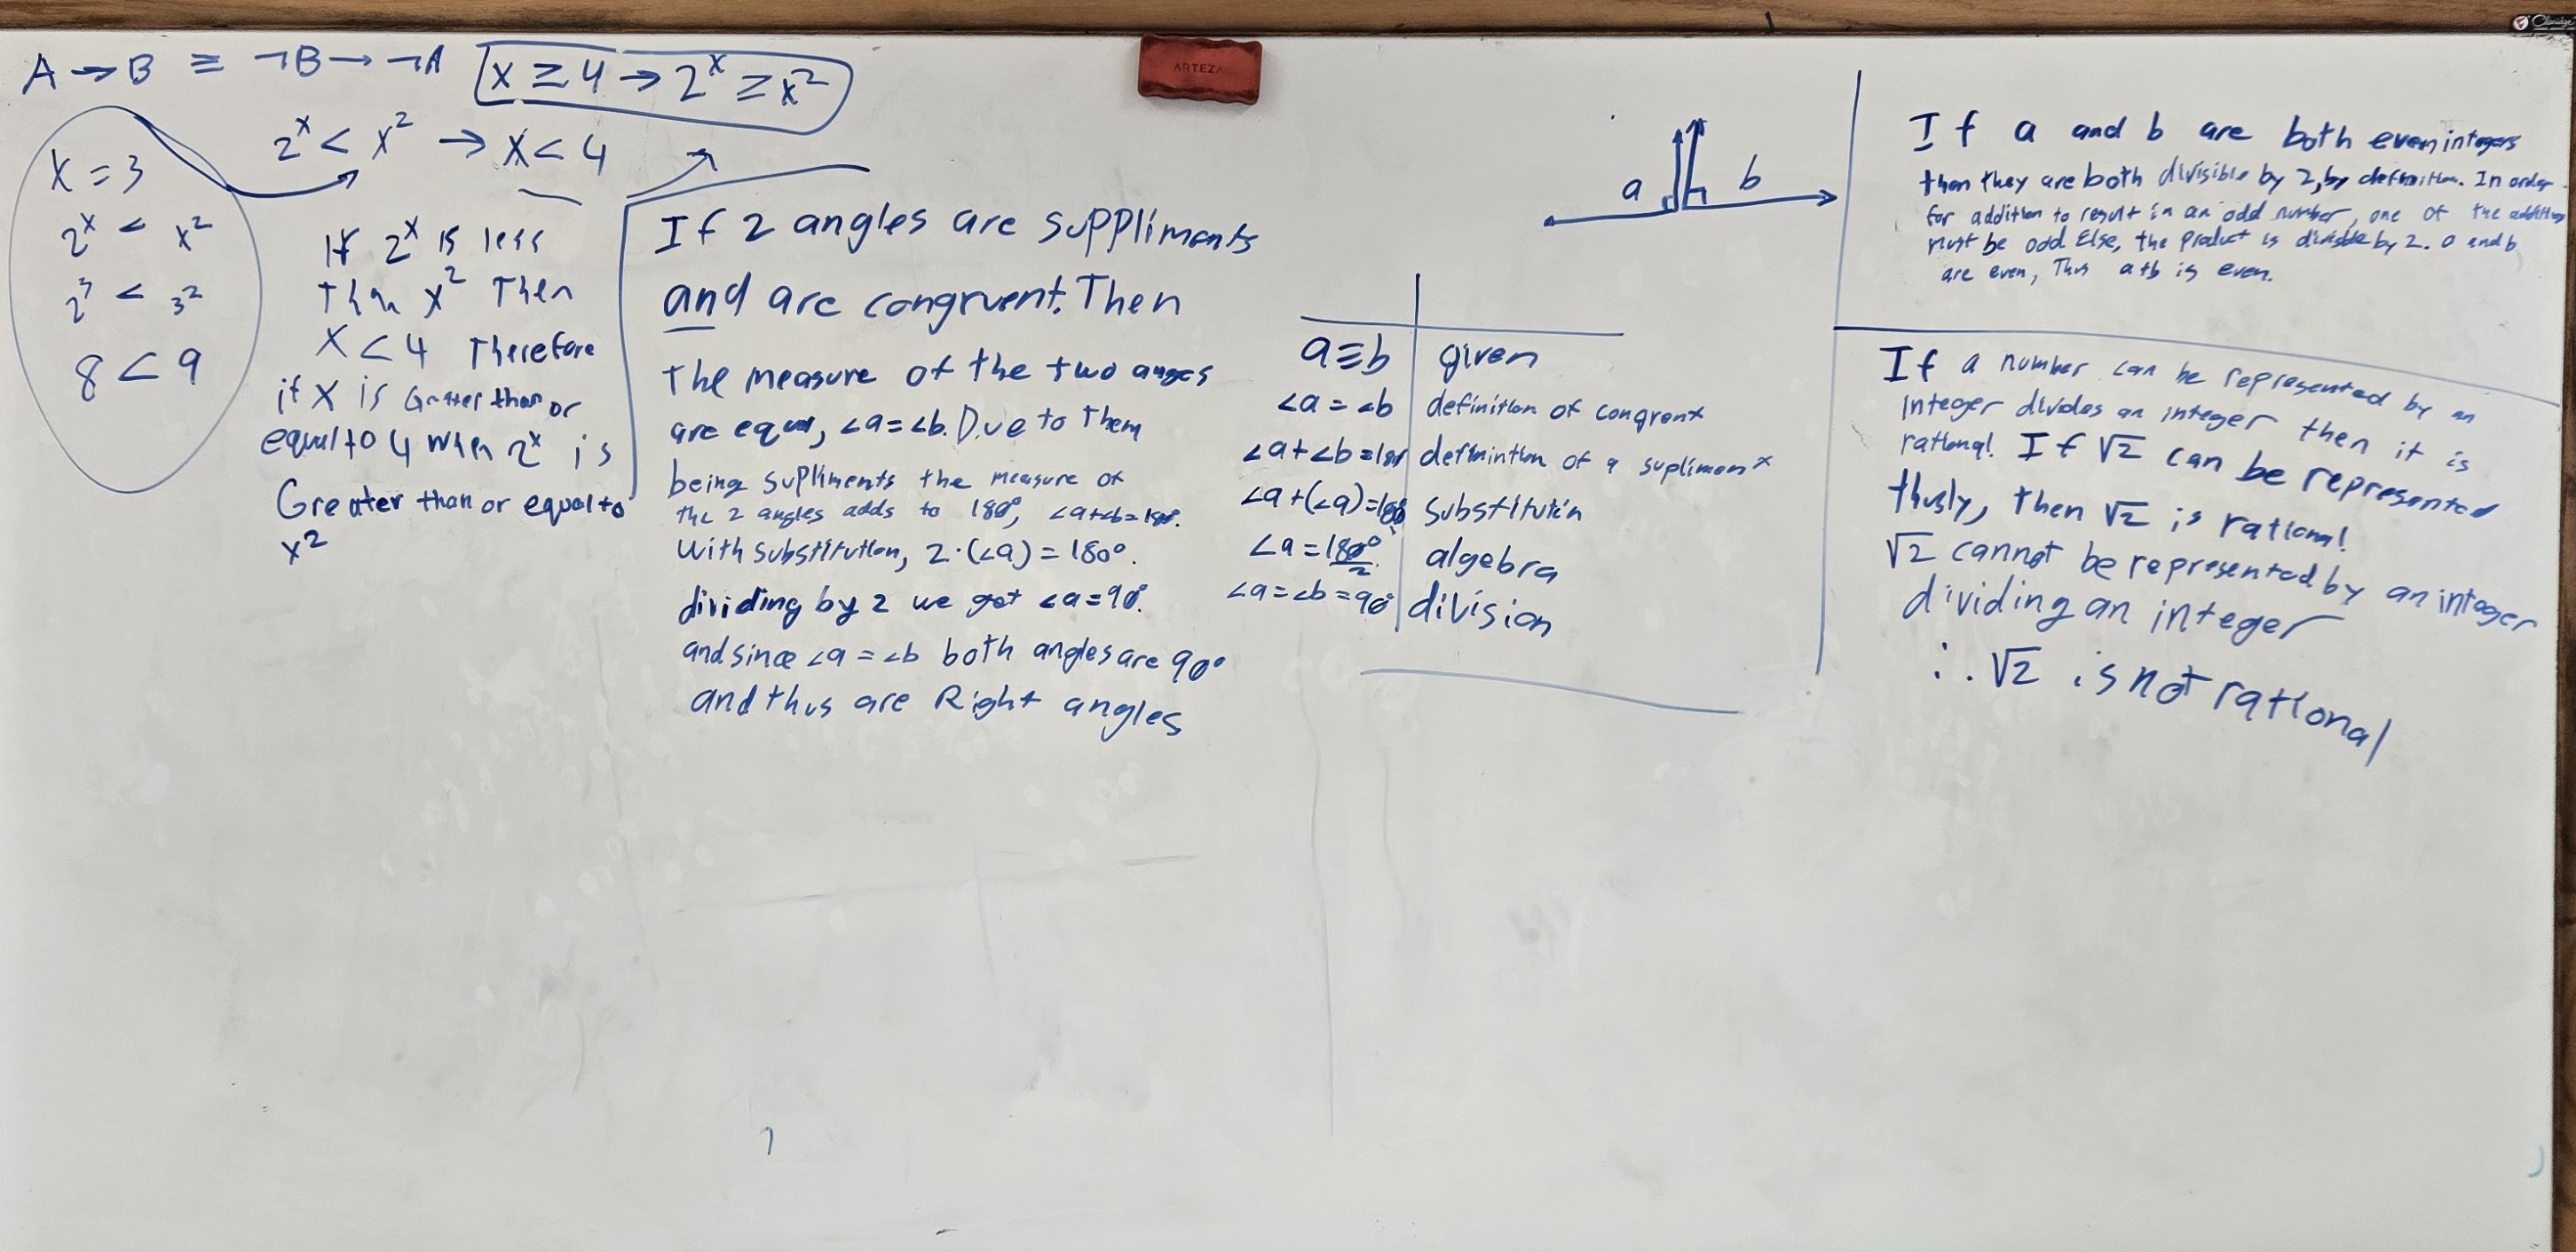 A → B ≡ ¬B → ¬A
x ≥ 4 → 2^x ≥ x^2
2^x < x^2 → x < 4
x = 3
2^x < x^2
2^3 < 3^2
8 < 9
If 2^x is less
than x^2 then
x < 4 Therefore
if x is Greater than or
equal to 4 when 2^x is
Greater than or equal to
x^2
If 2 angles are suppliments
and are congruent. Then
the measure of the two anges
are equal, ∠a = ∠b. Due to them
being supliments the measure of
the 2 angles adds to 180°, ∠a+∠b=180°.
With substitution, 2·(∠a) = 180°.
dividing by 2 we get ∠a=90°.
and since ∠a = ∠b both angles are 90°
and thus are Right angles
ARTEZA
a b
a≅b given
∠a = ∠b definition of congrent
∠a+∠b=180 definintion of a supliment
∠a+(∠a)=180 substitutin
∠a = 180°/2 algebra
∠a=∠b=90° division
If a and b are both even integers
then they are both divisible by 2, by definition. In order
for addition to result in an odd number, one of the
must be odd. Else, the product is divisible by 2. a and b
are even, Thus a+b is even.
If a number can be represented by an
integer divides an integer then it is
rational. If √2 can be represented
thusly, then √2 is rational.
√2 cannot be represented by an integer
dividing an integer
∴ √2 is not rational